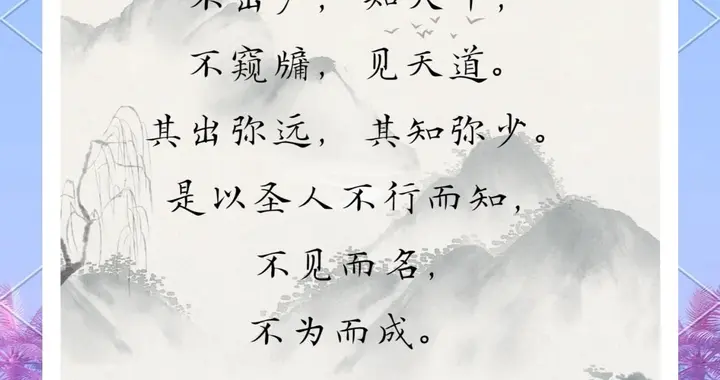 不出户，知天下，
不窥牖，见天道。
其出弥远，其知弥少。
是以圣人不行而知，
不见而名，
不为而成。